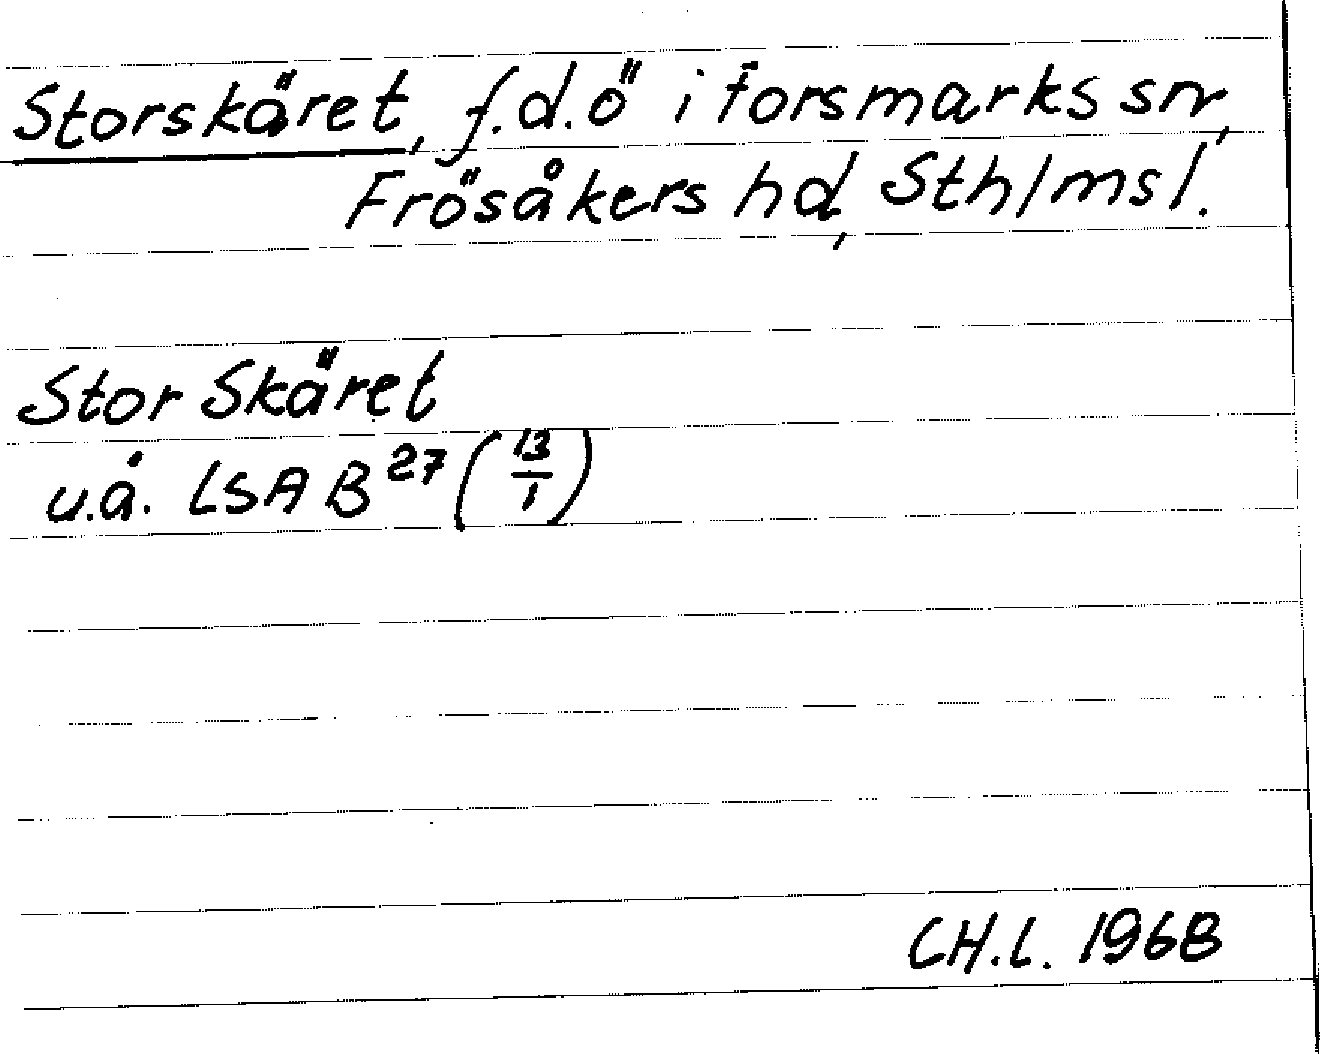 Storskäret, f.d. ö i Forsmarks sn,
Frösåkers hd, Sthlms l.
Stor Skäret
u.å. LSA B 27 (13/1)
CH.L. 1968